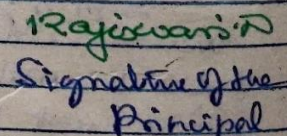 Rajiswari.D
Signature of the
Principal